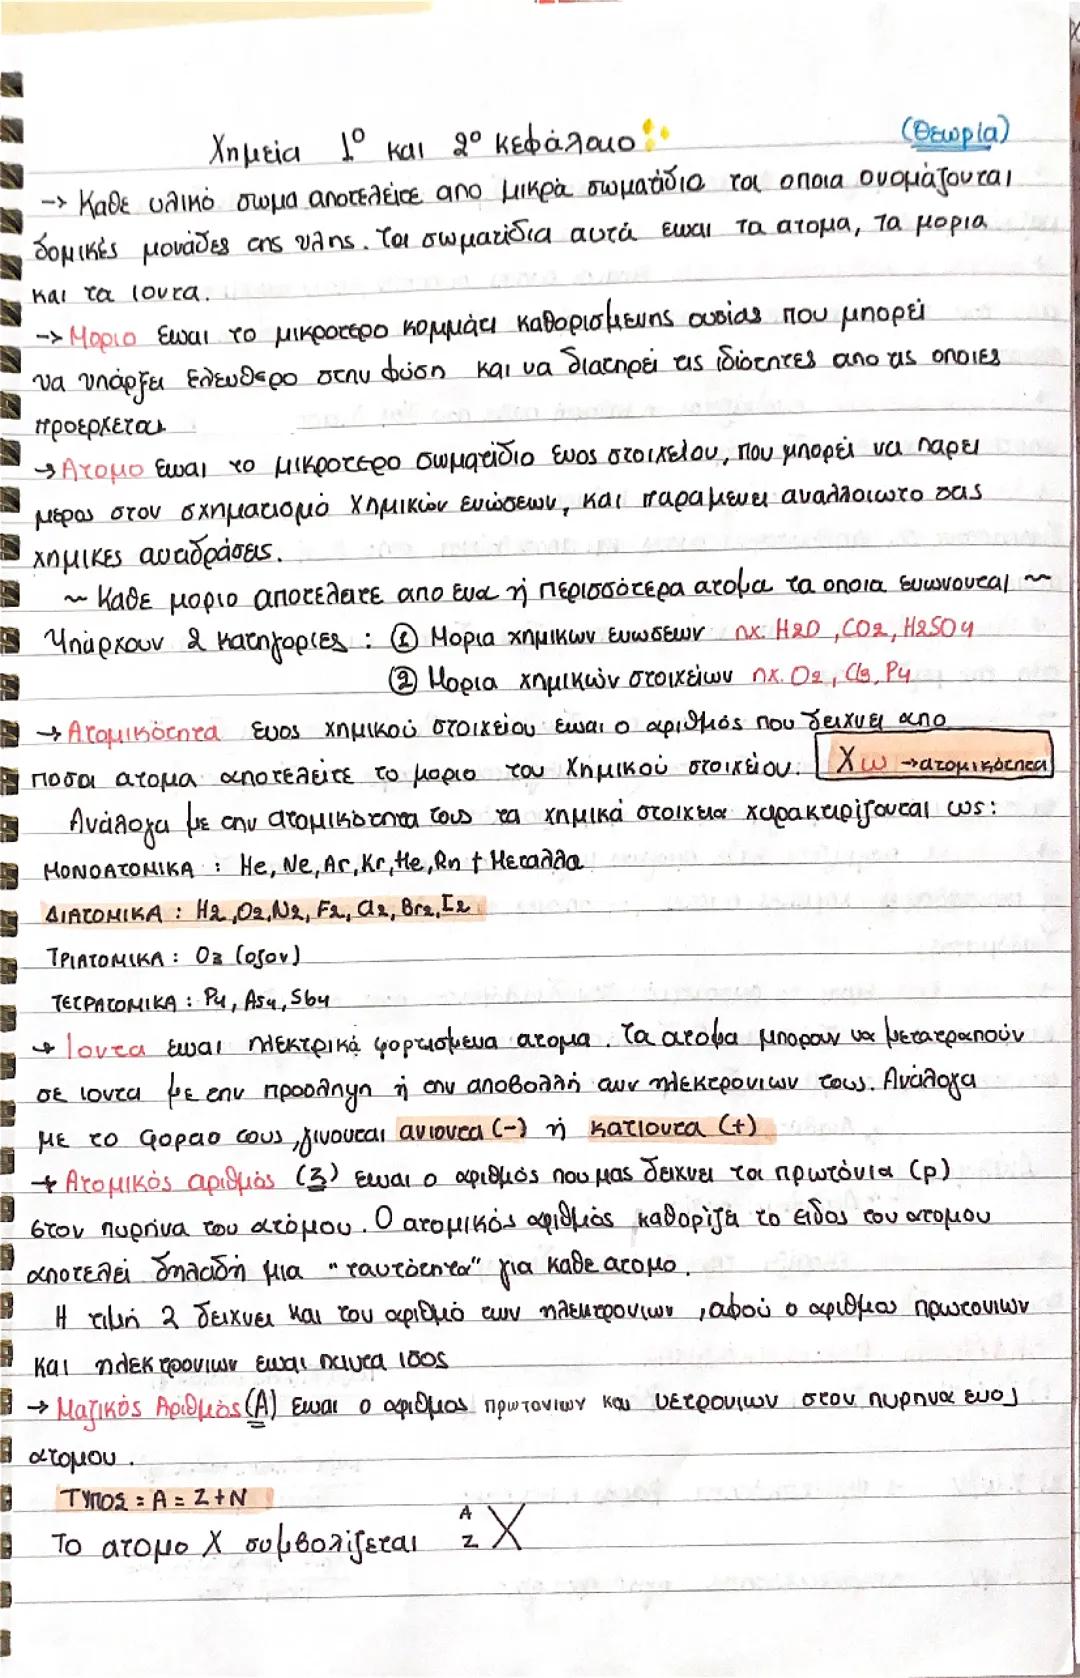 Χημεία 1º και 2º κεφάλαιο (Θεωρία)
→ Καθε υλικό σωμα αποτελείτε απο μικρά σωματίδιο τα οποια ονομάζονται
δομικές μονάδες της υλης. Τα σωματίδια αυτά ειναι τα ατομα, τα μορια
και τα ιοντα.
→ Μοριο ειναι το μικροτερο κομμάτι καθορισμενης ουσίας που μπορεί
να υπάρξει ελευθερο στην φύση και να διατηρεί τις ιδιότητες απο τις οποιες
προερχεται
→ Ατομο ειναι το μικροτερο σωματίδιο ενος στοιχείου, που μπορεί να παρει
μερος στον σχηματισμό χημικών ενώσεων, και παραμενει αναλλοιωτο στις
χημικες αντιδράσεις.
~ Καθε μοριο αποτελειτε απο ενα ή περισσότερα ατομα τα οποια ενωνονται ~
Υπάρχουν 2 κατηγορίες : ① Μορια χημικων ενωσεων πχ. H2O , CO2, H2SO4
② Μορια χημικών στοιχείων πχ. O2, Cl2, P4
→ Ατομικότητα ενος χημικού στοιχείου ειναι ο αριθμός που δειχνει απο
ποσα ατομα αποτελείτε το μοριο του χημικού στοιχείου. Χω → ατομικότητα
Ανάλογα με την ατομικότητα τους τα χημικά στοιχεια χαρακτηρίζονται ως:
ΜΟΝΟΑΤΟΜΙΚΑ : He, Ne, Ar, Kr, He, Rn + Μεταλλα
ΔΙΑΤΟΜΙΚΑ : H2, O2, N2, F2, Cl2, Br2, I2
ΤΡΙΑΤΟΜΙΚΑ : O3 (οζον)
ΤΕΤΡΑΤΟΜΙΚΑ : P4, As4, Sb4
→ Ιοντα ειναι ηλεκτρικά φορτισμενα ατομα. Τα ατομα μπορουν να μετατραπούν
σε ιοντα με την προσληψη ή την αποβολλή των ηλεκτρονιων τους. Ανάλογα
με το φορτιο τους, γινονται ανιοντα (-) ή κατιοντα (+)
→ Ατομικός αριθμός (Z) ειναι ο αριθμός που μας δειχνει τα πρωτόνια (p)
στον πυρήνα του ατόμου. Ο ατομικός αριθμός καθορίζει το ειδος του ατομου
αποτελεί δηλαδή μια "ταυτότητα" για καθε ατομο.
Η τιμή Z δειχνει και τον αριθμό των ηλεκτρονιων , αφού ο αριθμος πρωτονιων
και ηλεκτρονιων ειναι παντα ισος
→ Μαζικός Αριθμός (Α) ειναι ο αριθμος πρωτονιων και νετρονιων στον πυρηνα ενος
ατομου.
ΤΥΠΟΣ = A = Z + N
Το ατομο Χ συμβολίζεται A Z X